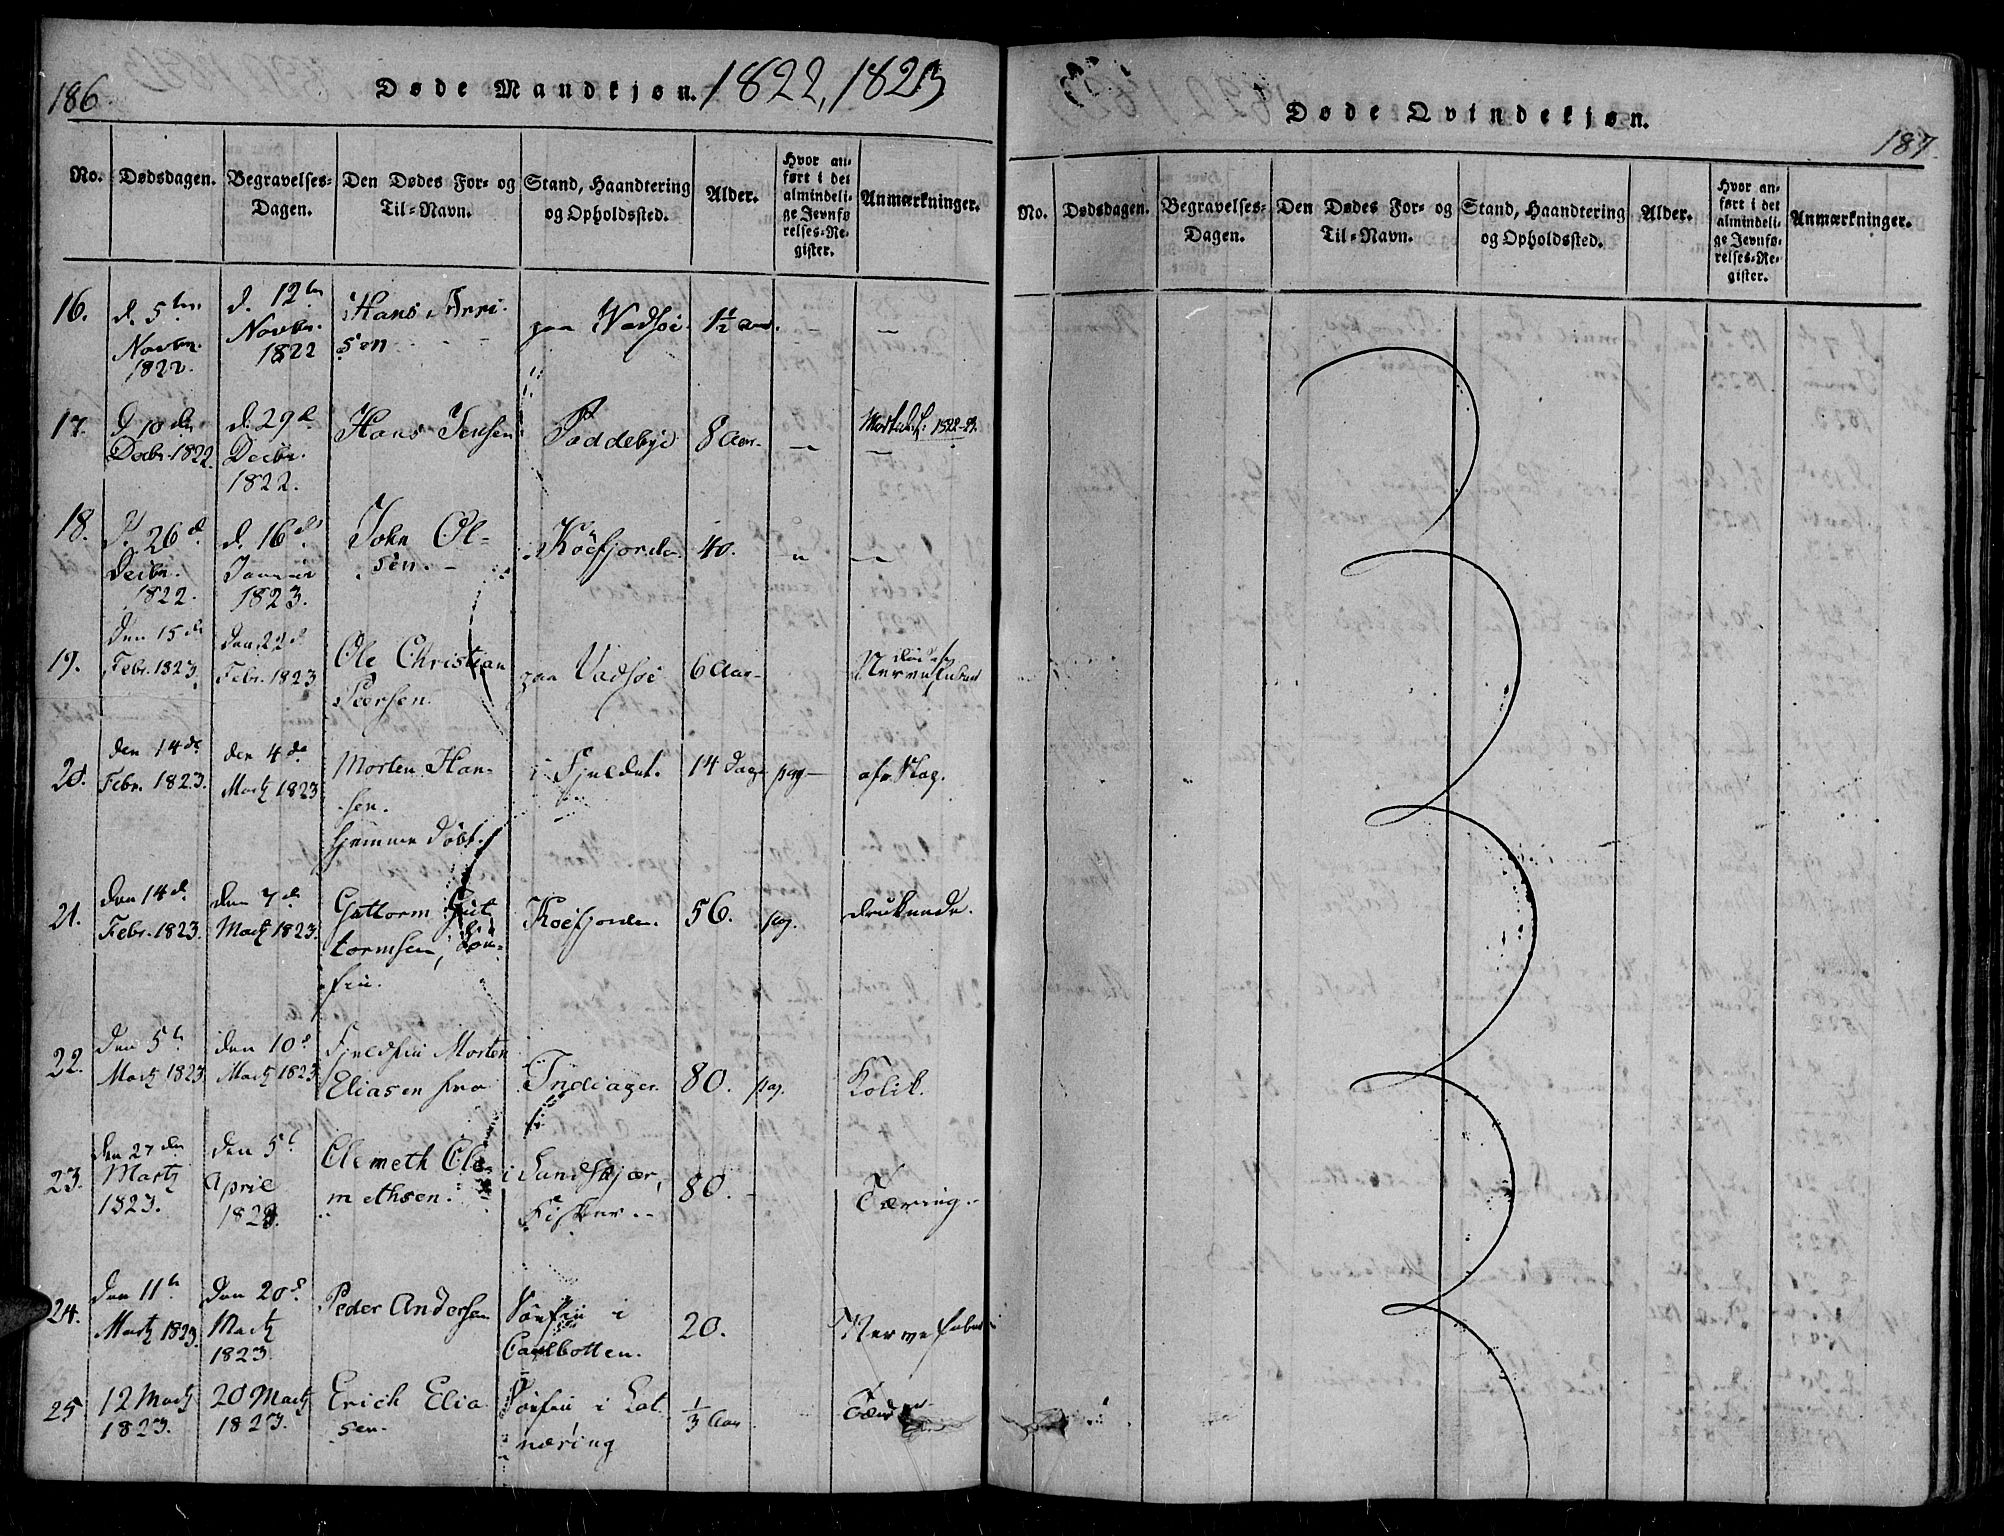 186.
Døde Mandkjøn. 1822, 1823
No.
Dødsdagen.
Begravelses-
Dagen.
Den Dødes For- og
Til-Navn.
Stand, Haandtering
og Opholdssted.
Alder.
Hvor an-
ført i det
almindeli-
ge Jevnfø
relses-Re-
gister.
Anmærkninger.
16.
d. 5ten
Novbr.
1822.
d. 12ten
Novbr.
1822
Hans
sen
paa Vadsöe
1½ Aar.
17.
D. 10de
Decbr. 1822.
d. 29de
Decbr.
1822.
Hans Jensen
Paddebye
8 Aar.
1822-23.
18.
D. 26d.
Decbr.
1822.
d. 16de
Januar
1823.
John Ol-
sen.
Köefjorden
40.
19.
Den 15de
Febr. 1823.
den 22d
Febr. 1823
Ole Christian
Peersen.
paa Vadsöe
6 Aar
død af
Nervefeber
20.
den 14de
Febr. 1823.
den 4de
Martz 1823
Morten Han-
sen.
hjemme döbt.
i Fjeldet.
14 Dage
pag
af Slag.
21.
den 14d.
Febr. 1823.
den 7d
Martz 1823.
Guttorm Gut
tormsen, Söe-
fin.
Köefjorden.
56.
pag.
druknede.
22.
den 5te
Martz 1823
den 10d
Martz 1823.
Fjeldfin Morten
Eliasen fra
Indiager
80.
pag.
Kolik.
23.
den 27de
Martz
1823.
den 5t
April
1823.
Clemeth Cle-
methsen.
i Sandskjær,
Fisker
80.
Tæring.
24.
den 11te
Martz 1823.
den 20d
Martz
1823.
Peder Andersen
Söefin i
Carlbotten.
20.
Nervefeber
25
12 Martz
1823.
20 Martz
1823.
Erich Elia
sen.
Söefin i Lat
næring
1/3 Aar
Døde Qvindekjøn.
187.
No.
Dødsdagen.
Begravelses-
Dagen.
Den Dødes For- og
Til-Navn.
Stand, Haandtering
og Opholdssted.
Alder.
Hvor an-
ført i det
almindeli-
ge Jevnfø-
relses-Re-
gister.
Anmærkninger.